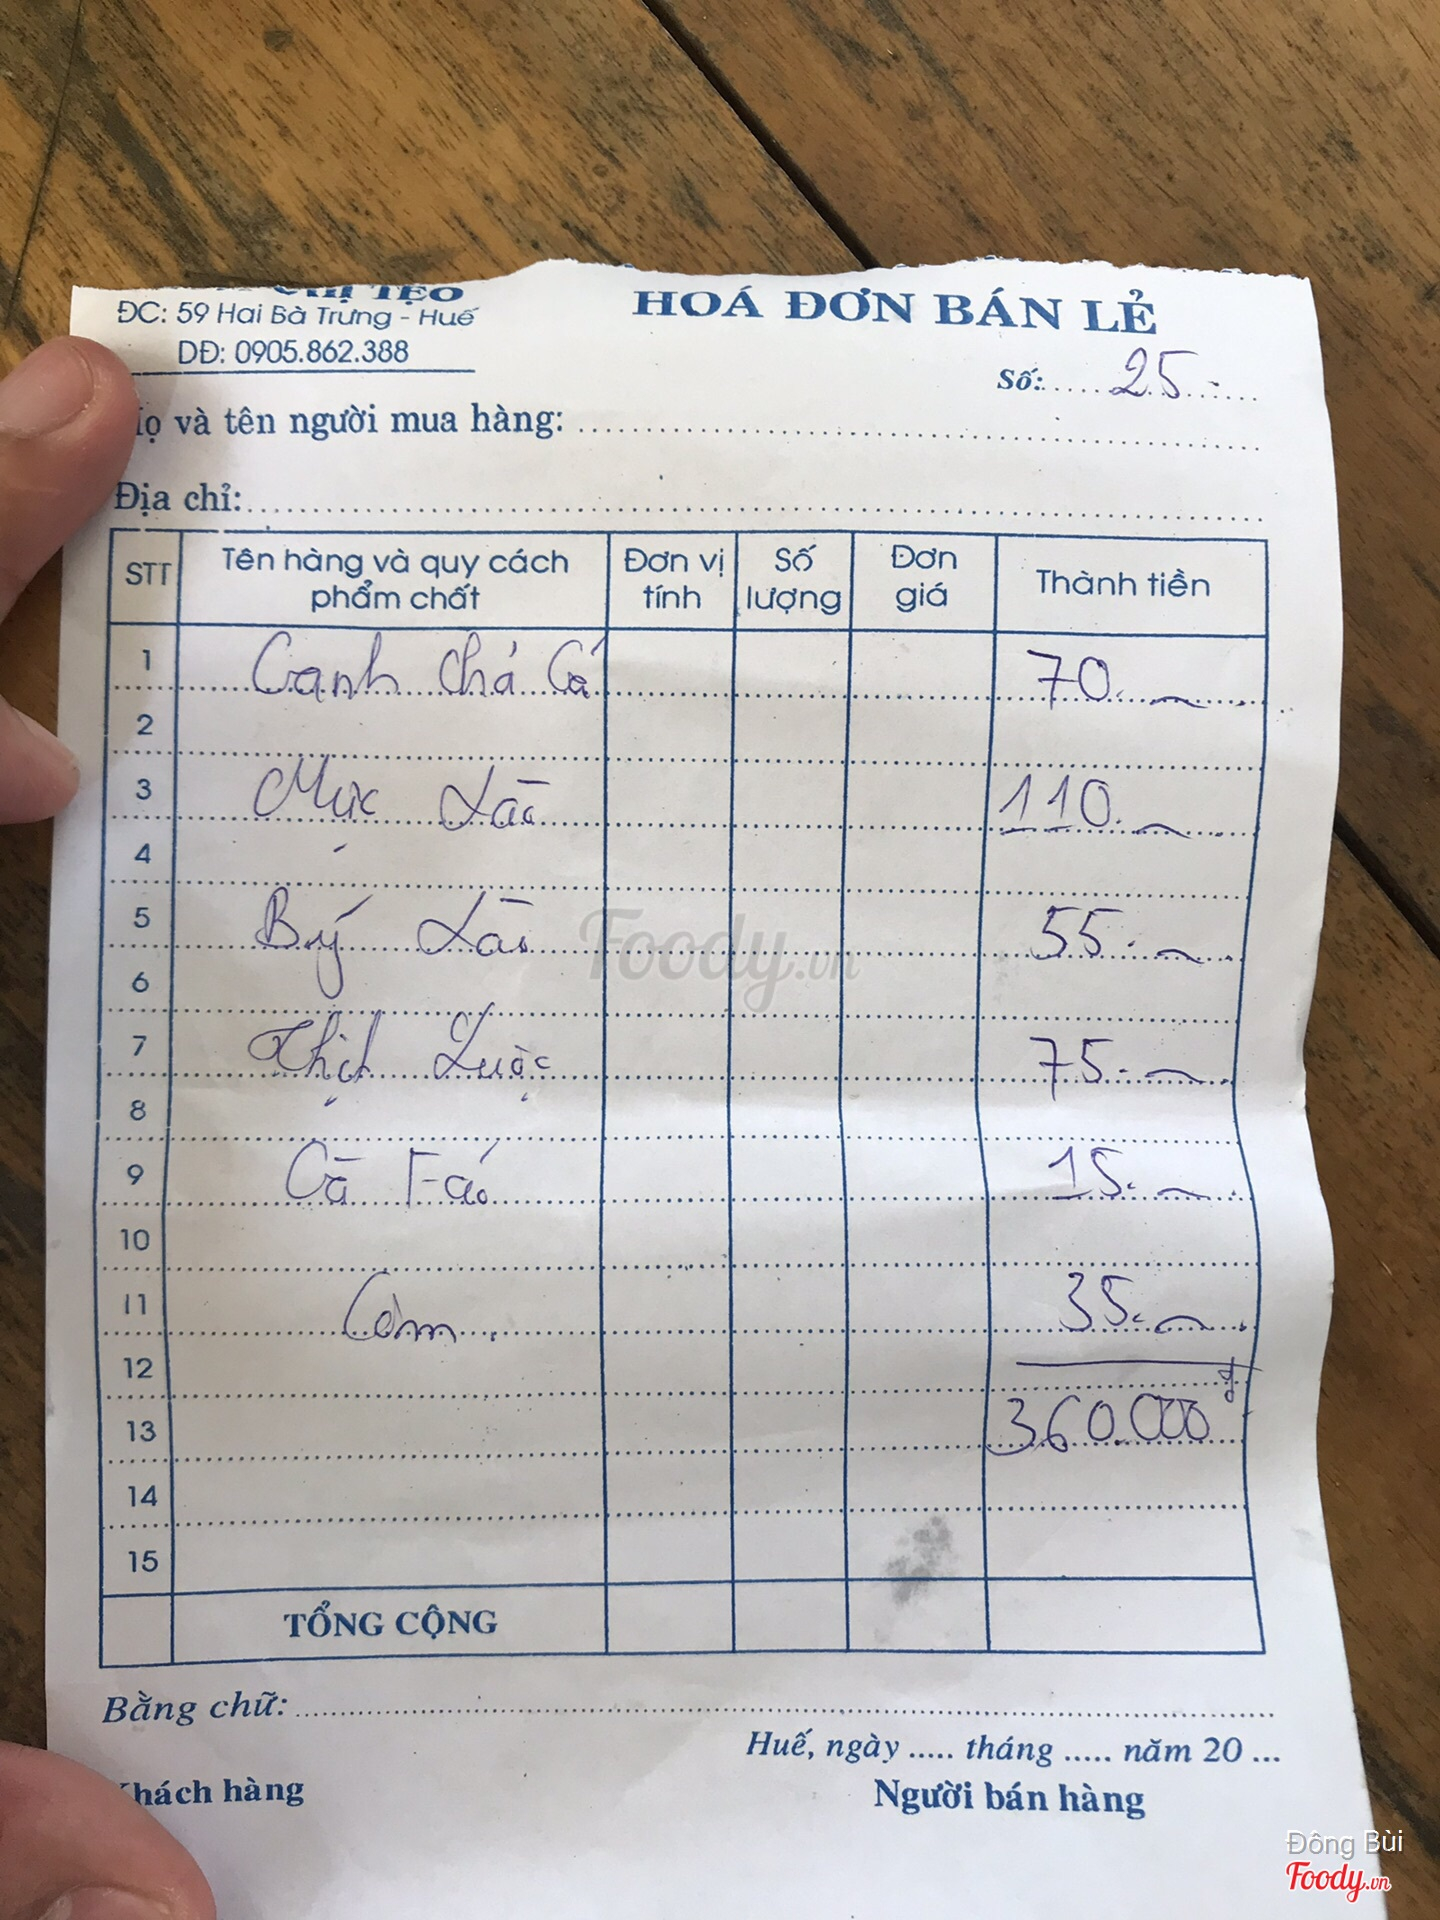 CHỊ TẸO
ĐC: 59 Hai Bà Trưng - Huế
DĐ: 0905.862.388
HOÁ ĐƠN BÁN LẺ
Số: 25
Họ và tên người mua hàng:
Địa chỉ:
STT Tên hàng và quy cách phẩm chất Đơn vị tính Số lượng Đơn giá Thành tiền
1 Canh Chả Cá 70.
2
3 Mực Xào 110.
4
5 Bý Xào 55.
6
7 Thịt Luộc 75.
8
9 Cà Fáo 15.
10
11 Cơm. 35.
12
13 360.000đ
14
15
TỔNG CỘNG
Bằng chữ:
Huế, ngày ..... tháng ..... năm 20 ...
Khách hàng Người bán hàng
Foody.vn
Đông Bùi
Foody.vn